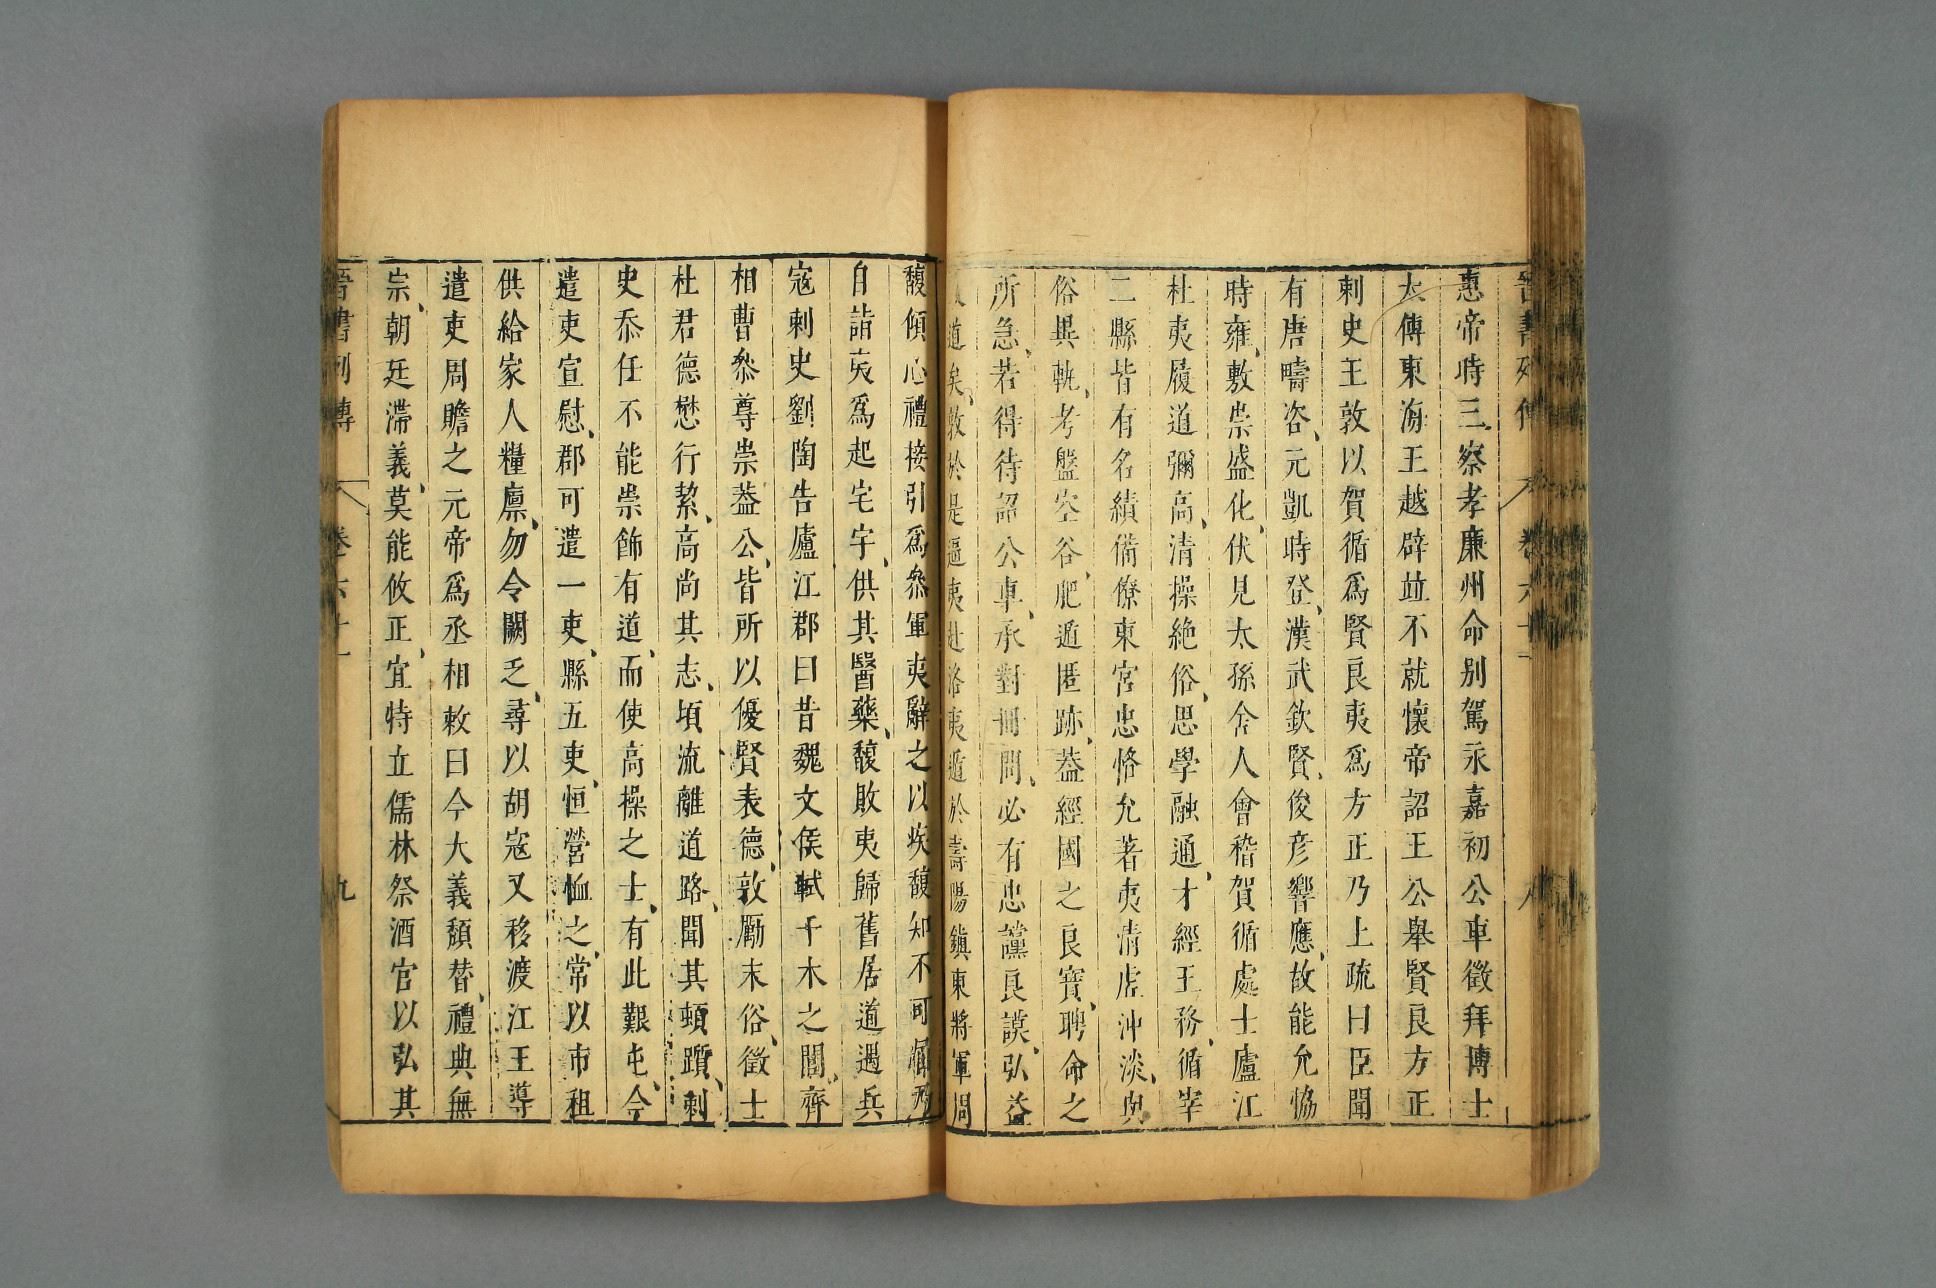 晉書列傳 卷六十一 八
惠帝時三察孝廉州命别駕永嘉初公車徵拜博士
太傅東海王越辟並不就懷帝詔王公舉賢良方正
刺史王敦以賀循爲賢良夷爲方正乃上疏曰臣聞
有唐疇咨元凱時登漢武欽賢俊彦響應故能允恊
時雍敷崇盛化伏見太孫舍人會稽賀循處士廬江
杜夷履道彌高清操絶俗思學融通才經王務循宰
二縣皆有名績備僚東宮忠恪允著夷清虛沖淡與
俗異軌考盤空谷肥遁匿跡葢經國之良寳聘命之
所急若得待詔公車承對冊問必有忠讜良謨弘益
政道矣敦於是逼夷赴洛夷遁於壽陽鎭東將軍周
馥傾心禮接引爲叅軍夷辭之以疾馥知不可屈乃
自詣夷爲起宅宇供其醫藥馥敗夷歸舊居道遇兵
寇刺史劉陶告廬江郡曰昔魏文侯軾干木之閭齊
相曹叅尊崇葢公皆所以優賢表德敦勵末俗徵士
杜君德懋行㓗高尚其志頃流離道路聞其頓躓刺
史忝任不能崇飾有道而使高操之士有此艱屯今
遣吏宣慰郡可遣一吏縣五吏恒營恤之常以市租
供給家人糧廩勿令闕乏尋以胡寇又移渡江王導
遣吏周贍之元帝爲丞相敎曰今大義頹替禮典無
宗朝廷滯義莫能攸正宜特立儒林祭酒官以弘其
晉書列傳 卷六十一 九